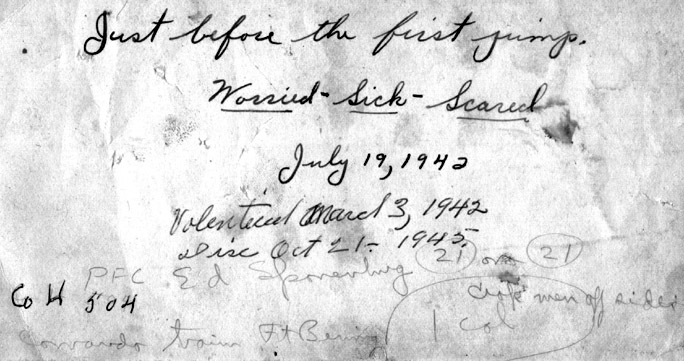 Just before the first jump.
Worried - Sick - Scared
July 19, 1942
Volenteued March 3, 1942
Disc Oct 21 - 1945
PFC Ed 21 on 21
Co H 504 crop men off sides
train Ft Bening 1 Col